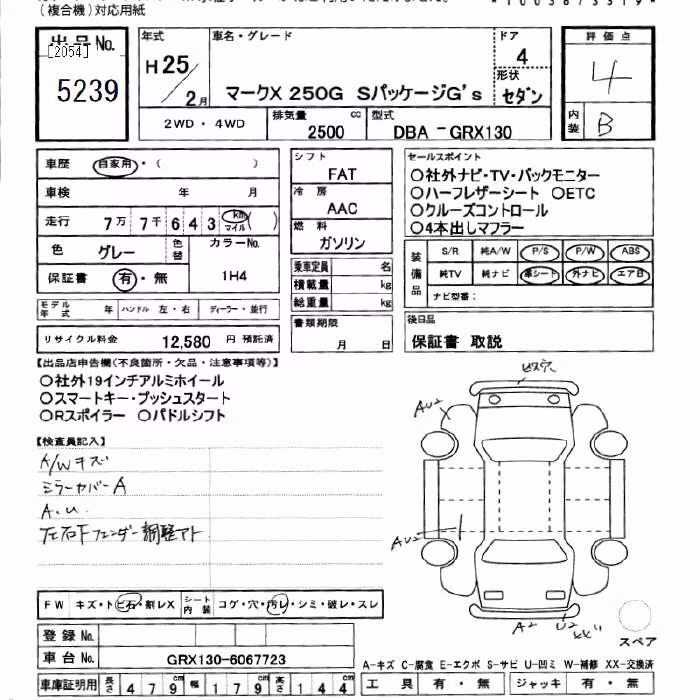 (複合機)対応用紙
出品No.
[2054]
5239
年式
H25/2月
車名・グレード
マークX 250G SパッケージG's
ドア
4
形状
セダン
評価点
4
内装
B
2WD・4WD
排気量
2500
cc
型式
DBA-GRX130
車歴
自家用・( )
車検
年 月
走行
7万7千643
km
マイル
( )
色
グレー
色替
カラーNo.
1H4
保証書
有・無
モデル年式
年
ハンドル
左・右
ディーラー・並行
リサイクル料金
12,580
円 預託済
シフト
FAT
冷房
AAC
燃料
ガソリン
乗車定員
名
積載量
kg
総重量
kg
書類期限
月 日
セールスポイント
○社外ナビ・TV・バックモニター
○ハーフレザーシート ○ETC
○クルーズコントロール
○4本出しマフラー
装備品
S/R 純A/W P/S P/W ABS
純TV 純ナビ 革シート 外ナビ エア日
ナビ型番:
後日品
保証書 取説
【出品店申告欄(不良箇所・欠品・注意事項等)】
○社外19インチアルミホイール
○スマートキー・プッシュスタート
○Rスポイラー ○パドルシフト
【検査員記入】
A/Wキズ
ミラーカバーA
A.U.
左右Fフェンダー調整アト
FW
キズ・トビ石・割レX
シート内装
コゲ・穴・汚レ・シミ・破レ・スレ
登録No.
車台No.
GRX130-6067723
車庫証明用
長さ
479
cm
幅
179
cm
高さ
144
cm
AU2
AU2
A2
U2
スペア
A-キズ C-腐食 E-エクボ S-サビ U-凹ミ W-補修 XX-交換済
工具
有・無
ジャッキ
有・無